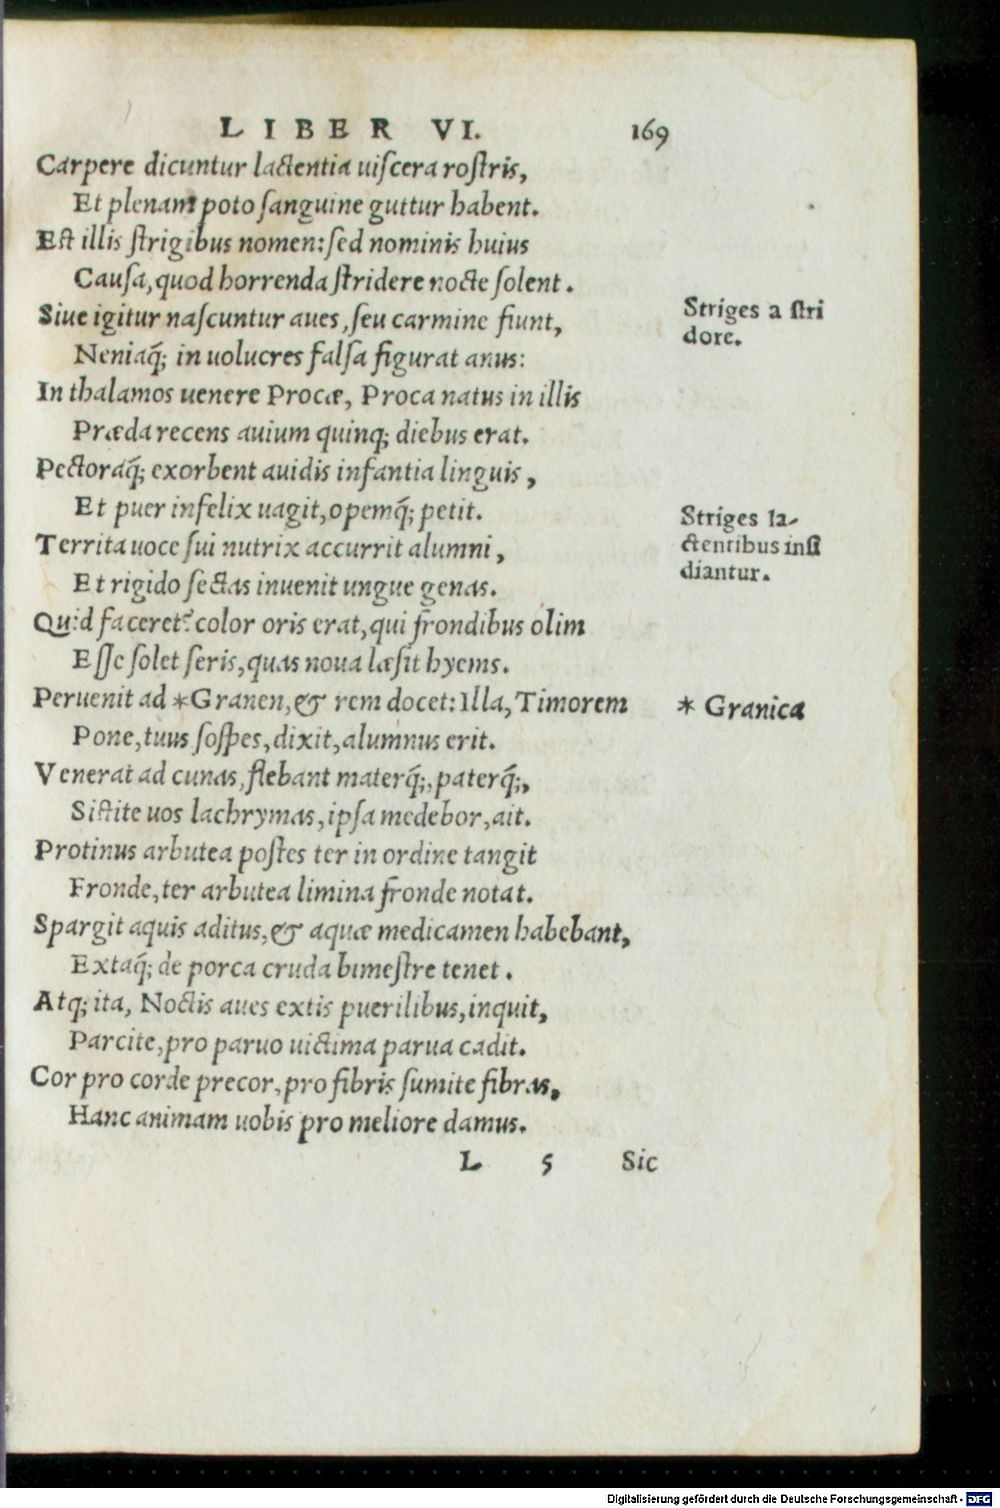 LIBER VI. 169
Carpere dicuntur lactentia uiſcera roſtris,
Et plenam poto ſanguine guttur habent.
Eſt illis ſtrigibus nomen: ſed nominis huius
Cauſa, quod horrenda ſtridere nocte ſolent.
Siue igitur naſcuntur aues, ſeu carmine fiunt,
Neniaq́; in uolucres falſa figurat anus:
In thalamos uenere Procæ, Proca natus in illis
Præda recens auium quinq; diebus erat.
Pectoraq́; exorbent auidis infantia linguis,
Et puer infelix uagit, opemq́; petit.
Territa uoce ſui nutrix accurrit alumni,
Et rigido ſectas inuenit ungue genas.
Quid faceret? color oris erat, qui frondibus olim
Eſſe ſolet ſeris, quas noua læſit hyems.
Peruenit ad *Granen, & rem docet: Illa, Timorem
Pone, tuus ſoſpes, dixit, alumnus erit.
Venerat ad cunas, flebant materq́;, paterq́;,
Siſtite uos lachrymas, ipſa medebor, ait.
Protinus arbutea poſtes ter in ordine tangit
Fronde, ter arbutea limina fronde notat.
Spargit aquis aditus, & aquæ medicamen habebant,
Extaq́; de porca cruda bimeſtre tenet.
Atq; ita, Noctis aues extis puerilibus, inquit,
Parcite, pro paruo uictima parua cadit.
Cor pro corde precor, pro fibris ſumite fibras,
Hanc animam uobis pro meliore damus.
L 5 Sic
Striges a ſtri
dore.
Striges la-
ctentibus inſi
diantur.
* Granica
Digitalisierung gefördert durch die Deutsche Forschungsgemeinschaft - DFG